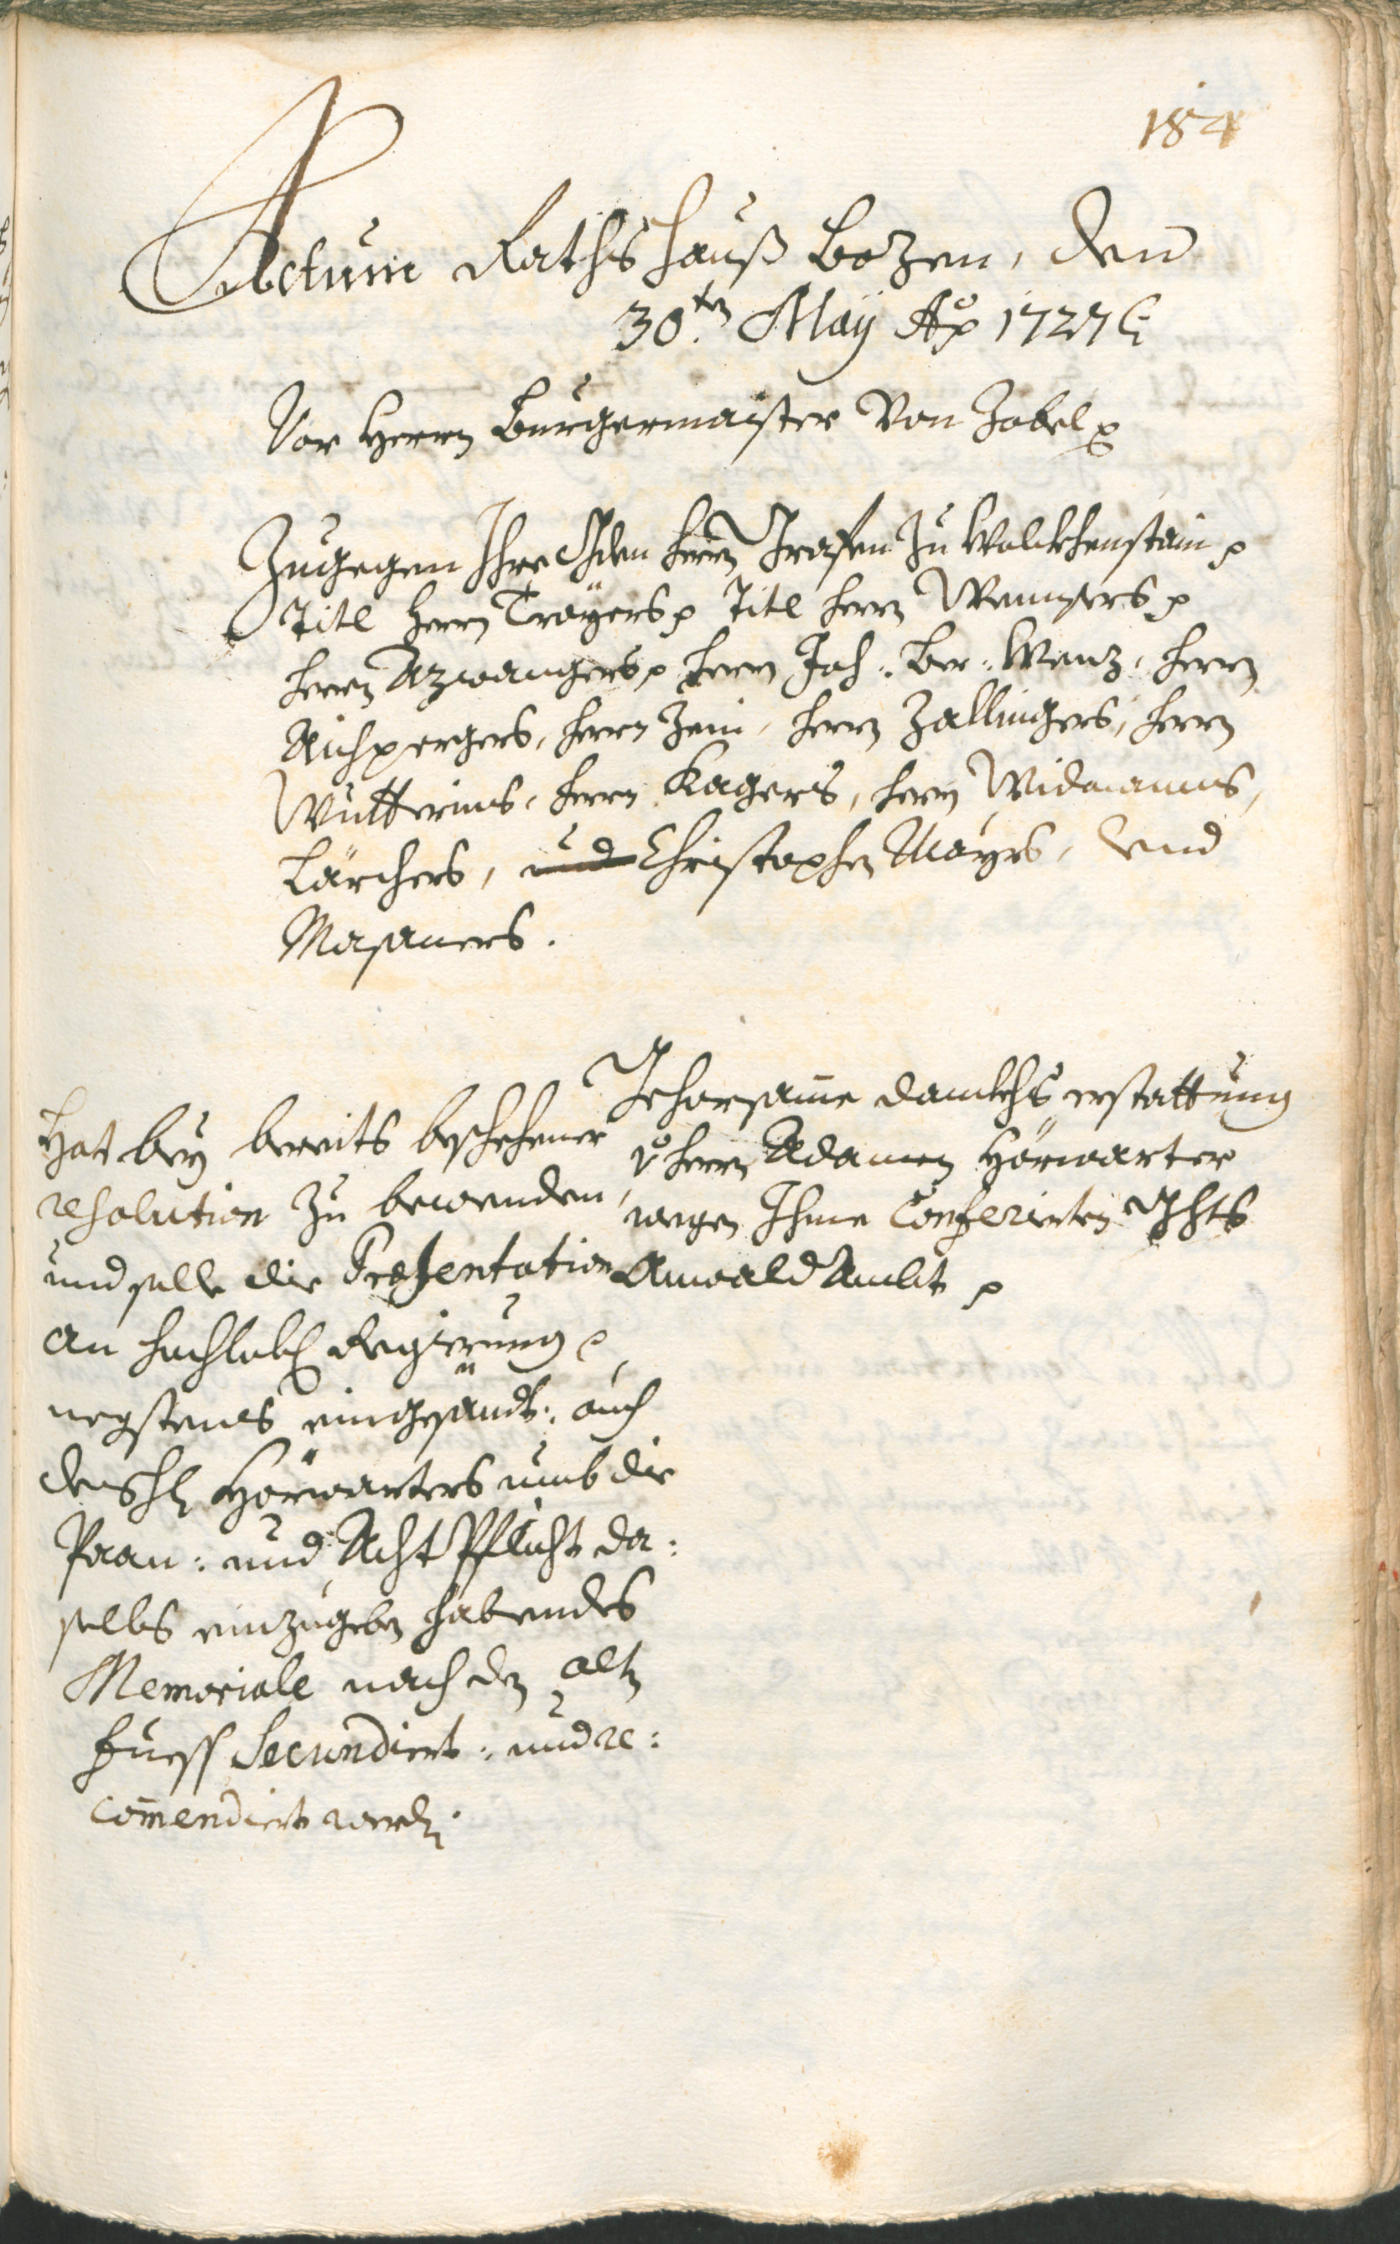 184
Actum Rathshauß Bozen, den
30.ten May Ao p 1727
Vor Herrn Burgermaister Von Zobel p
Zugegen Ihre Herrn Grafen zu Wolckhenstain p
Titl Herrn Troyers p Titl Herrn Wensers p
Herrn Azwangers p Herrn Joh: Ber: Wenz, Herrn
Aichpergers, Herrn Herrn Zallingers, Herrn
Herrn Kagers, Herrn Widmanns,
Lärchers, und Christophen Mayrs, und
Mosaners.
Gehorsame danckhs erstattung
v. Herrn Adamen Hörwarter
wegen Ihme Conferierten Ghts
Anwald Ambt p
Hat bey bereits beschehener
resolution zu bewenden,
und solle die Præsentation
an hochlobl Regierung p
negstens eingesändt: auch
des Hl Hörwarters umb die
Paan: und Acht Pflicht da:
selbs einzugeben habendes
Memoriale nach den alten
fuess Secundiert: und re:
comendiert werden.